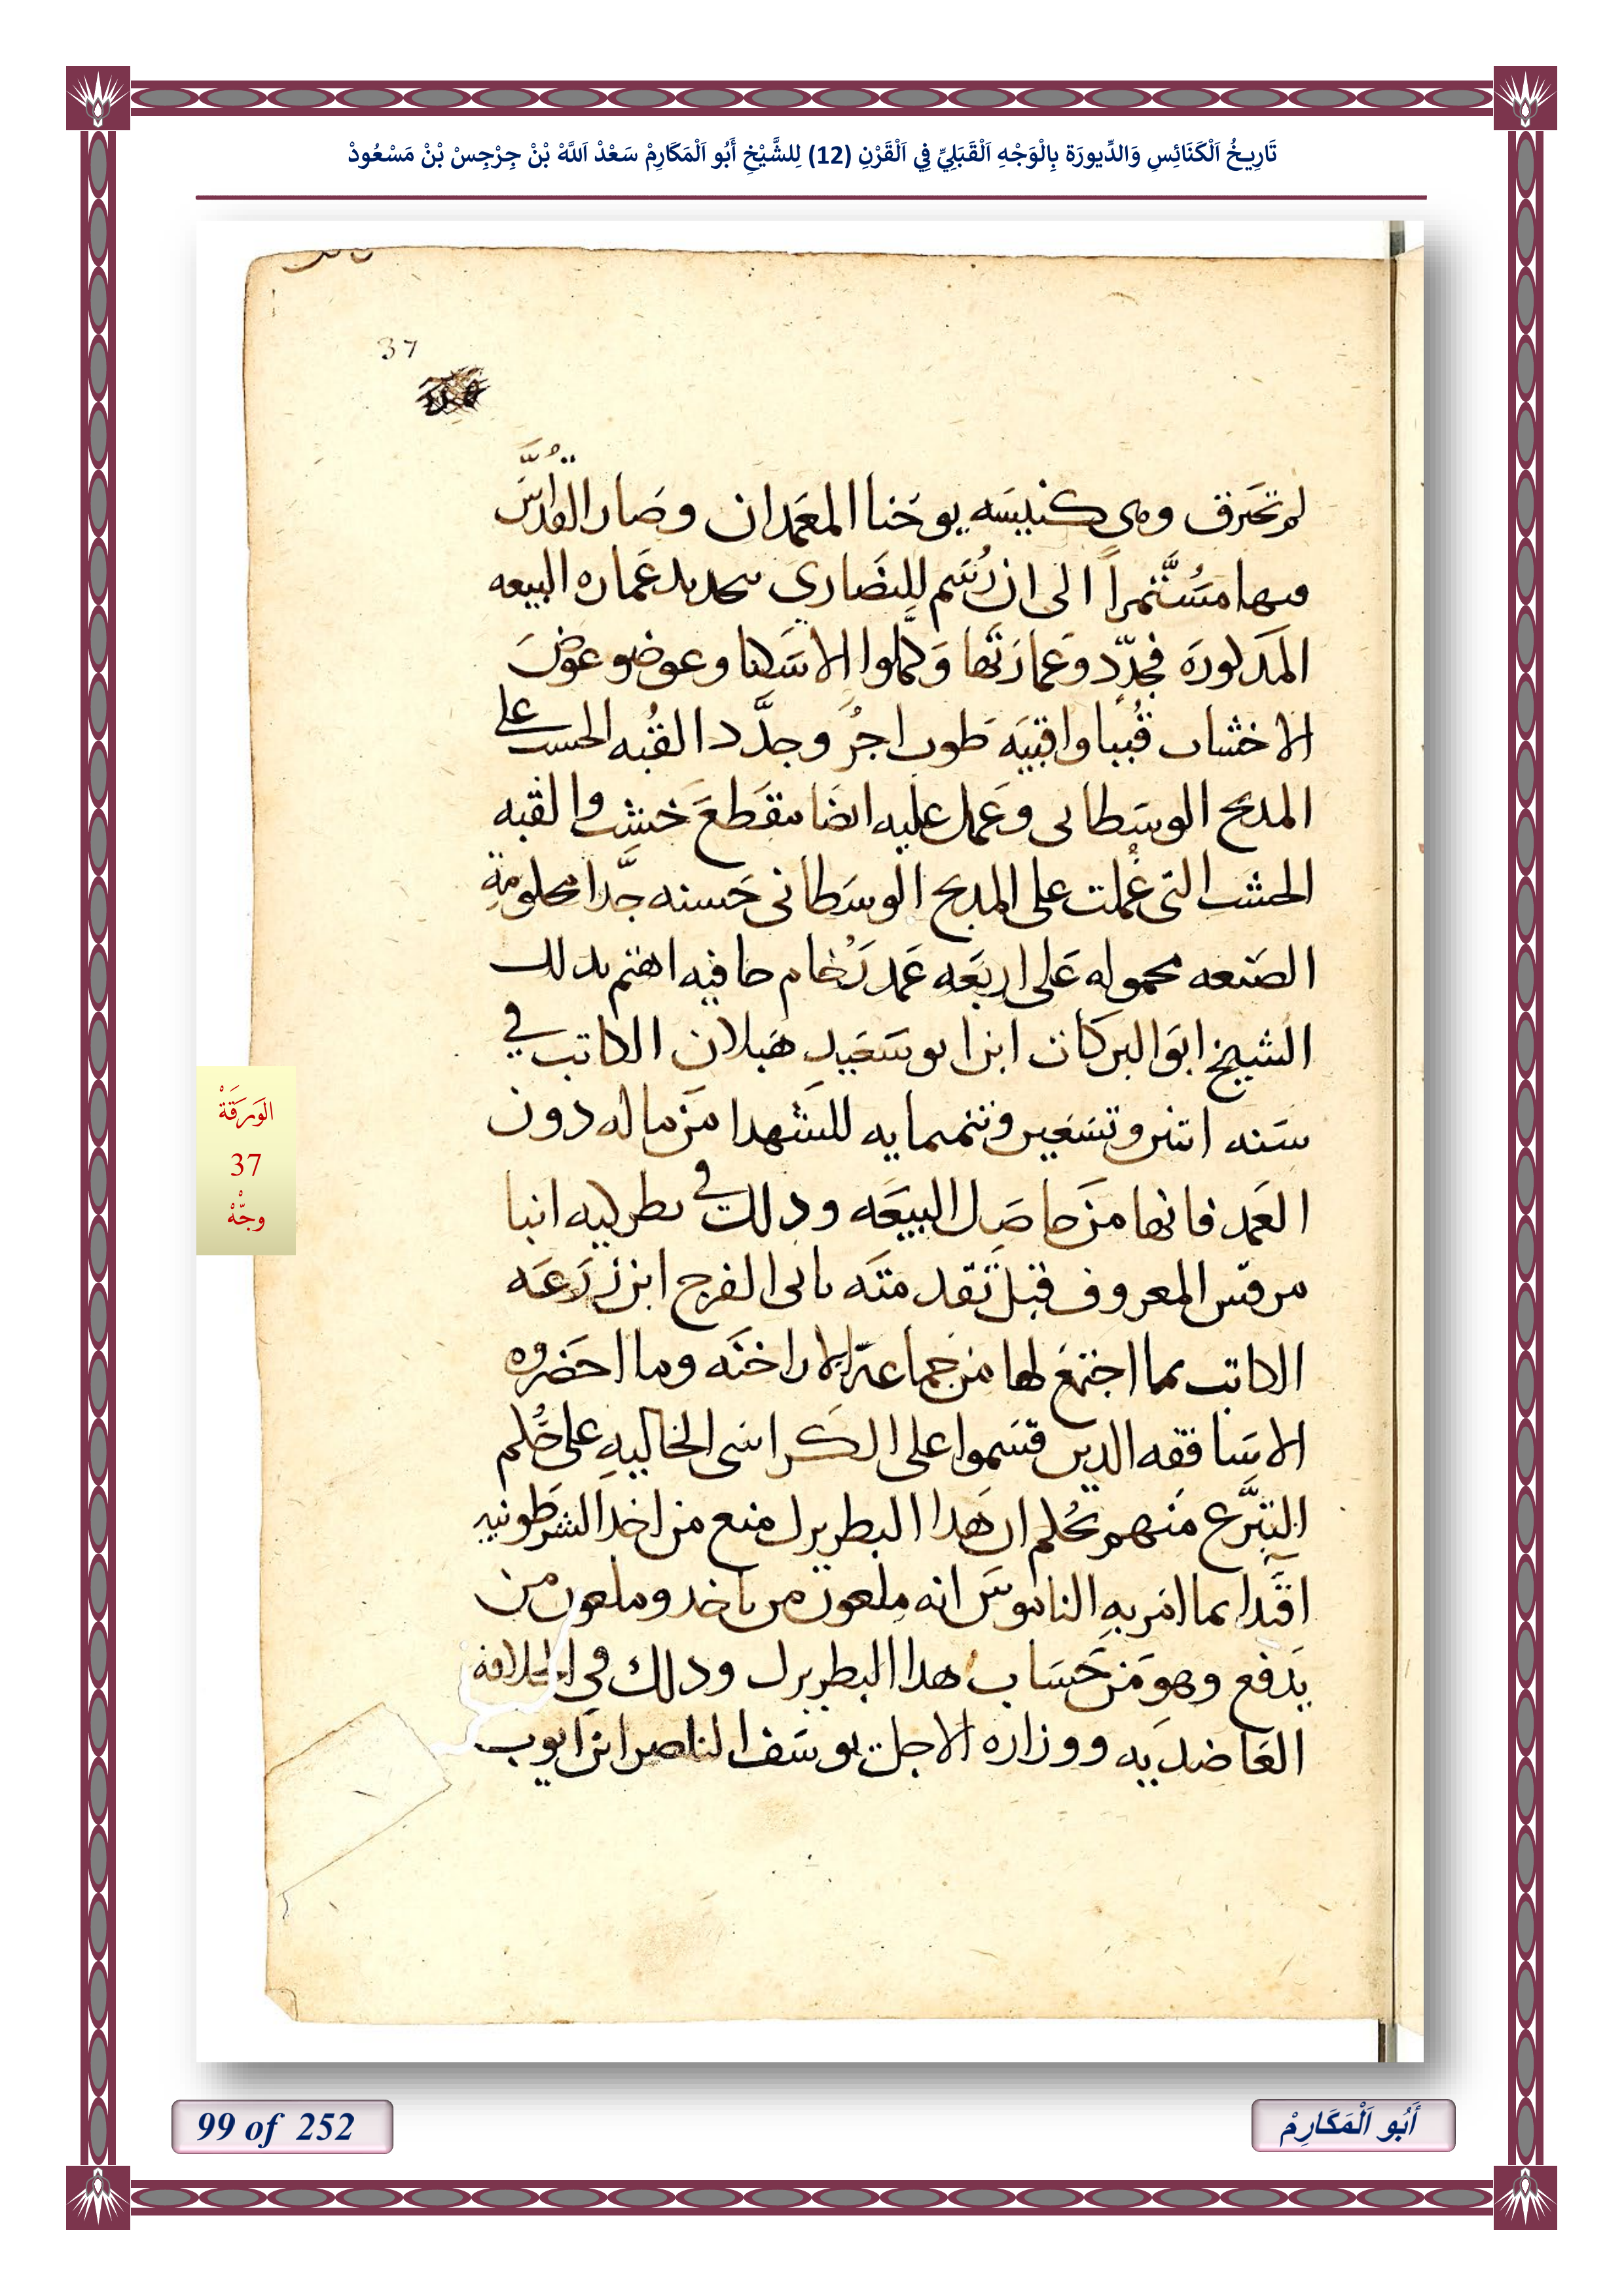 تَارِيخُ اَلْكَنَائِسِ وَالدِّيورَة بِالْوَجْهِ اَلْقَبَلِيِّ فِي اَلْقَرْنِ (12) لِلشَّيْخِ أَبُو اَلْمَكَارِمْ سَعْدْ اَللَّهْ بْنْ جِرْجِسْ بْنْ مَسْعُودْ
37
لم تحترق وهى كنيسه يوحنا المعمدان وصار القداس
فيها مستمراً الى ان رسم للنصاري بتجديد عماره البيعه
المذكوره فجدّدو عمارتها وكملوا الاسكنا وعوضو عوض
الاخشاب قببا واقبيه طوب اجر وجدّد القبه الخشب على
المدبح الوسطانى وعمل عليه ايضا مقطع خشب والقبه
الخشب التى عملت على المدبح الوسطانى حسنه جدّا محلومة
الصنعه محموله على اربعه عمد رخام صافيه اهتم بدلك
الشيخ ابو البركات ابن ابو سعيد هبلان الكاتب في
سنه اثنين وتسعين وثمنمايه للشهدا من ماله دون
العمد فانها من حاصل البيعه ودلك في بطركيه انبا
مرقس المعروف قبل تقدمته بابى الفرج ابن زرعه
الكاتب بما اجتمع لها من جماعة الاراخنه وما احضروه
الاساقفه الدين قسموا على الكراسى الخاليه على حُلم
التبرّع منهم بحُلم ان هدا البطريرك منع من اخد الشرطونيه
اقتدا بما امر به الناموس انه ملعون من ياخد وملعون من
يدفع وهو من حساب هدا البطريرك ودلك في الخلافة
العاضديه ووزاره الاجل يوسف الناصر ابن ايوب
الوَرَقَةْ
37
وجّهْ
99 of 252
أَبُو اَلْمَكَارِمْ